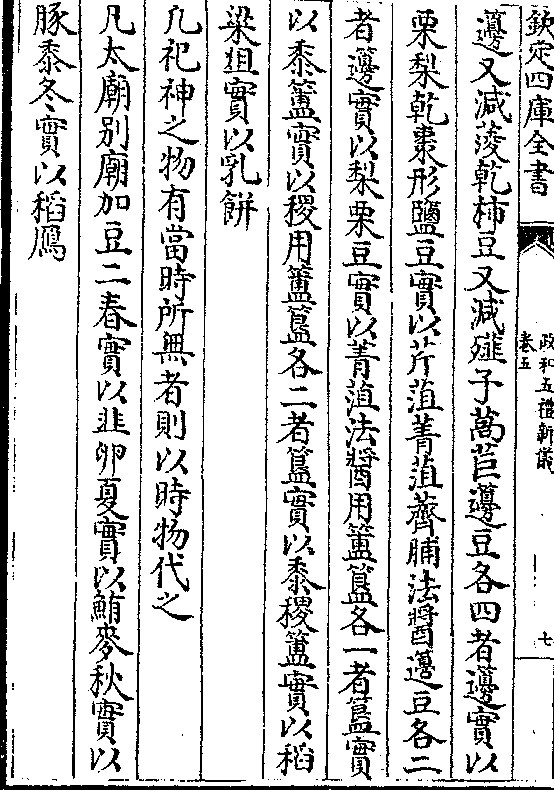 欽定四庫全書
政和五禮新儀
卷五
七
籩又減菱乾柿豆又減䕩子萵苣籩豆各四者籩實以
栗梨乾棗形鹽豆實以芹菹菁菹薺脯法醬籩豆各二
者籩實以梨栗豆實以菁菹法醬用簠簋各一者簋實
以黍簠實以稷用簠簋各二者簋實以黍稷簠實以稻
梁俎實以乳餅
凡祀神之物有當時所無者則以時物代之
凡太廟别廟加豆二春實以韭卵夏實以鮪麥秋實以
豚黍冬實以稻鴈